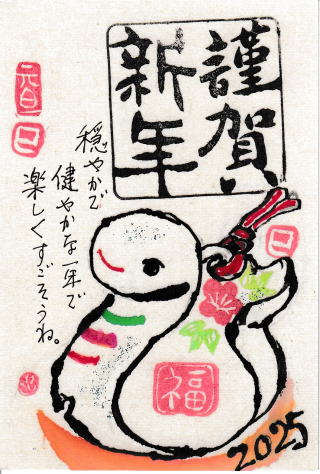 謹賀
新年
元旦
穏やかで
健やかな一年で
楽しくすごそうね。
福
2025